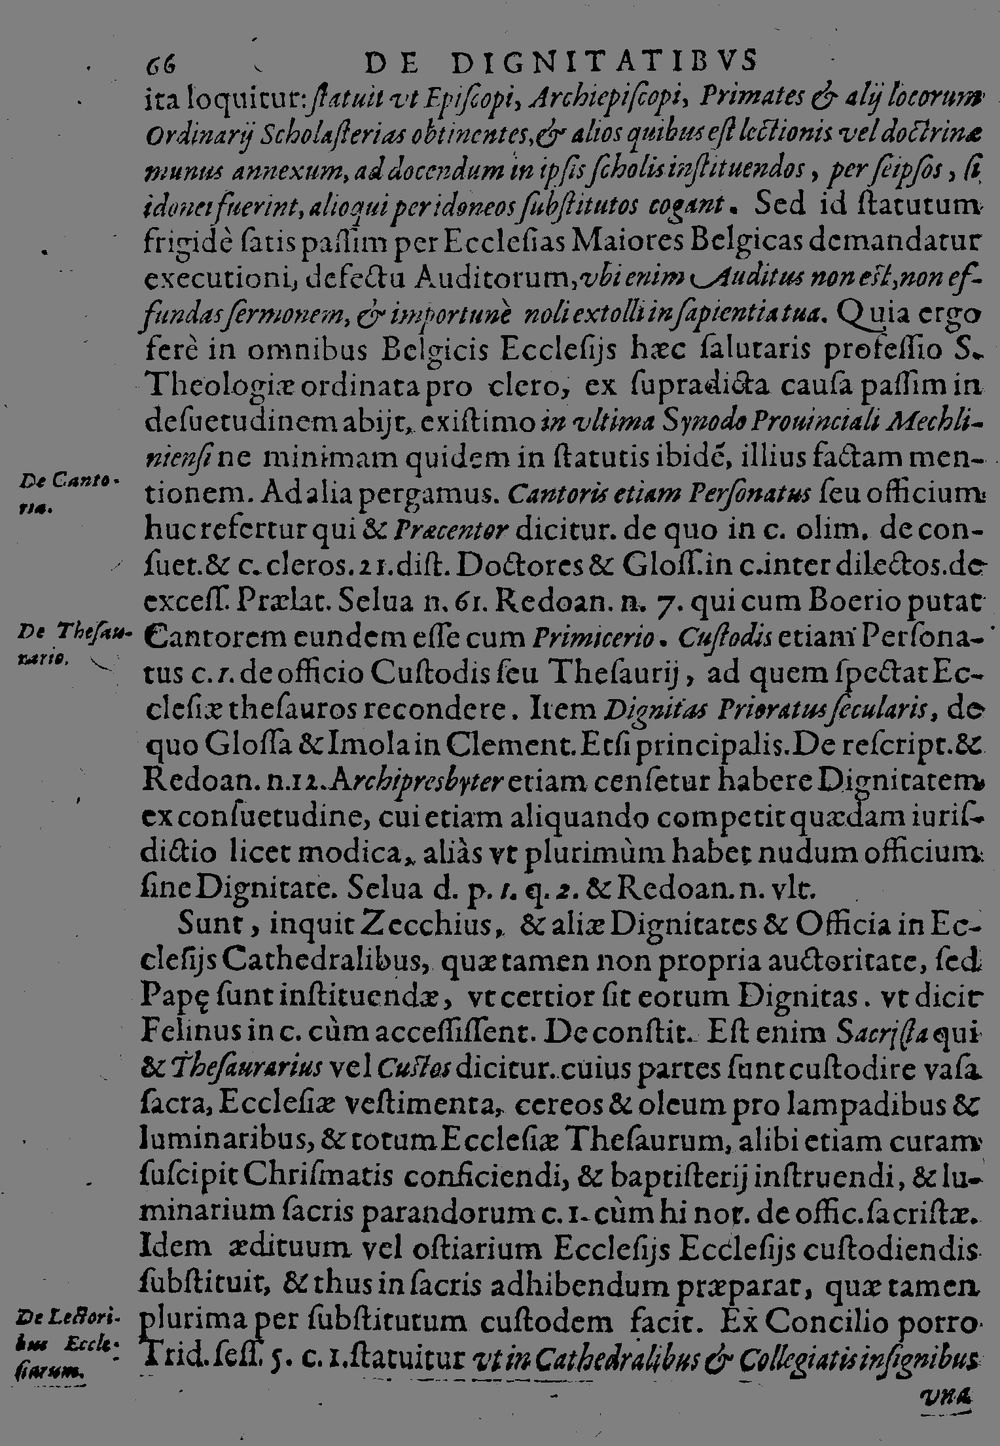 66 DE DIGNITATIBVS
ita loquitur: ſtatuit vt Epiſcopi, Archiepiſcopi, Primates & alij locorum
Ordinarij Scholaſterias obtinentes, & alios quibus eſt lectionis vel doctrinæ
munus annexum, ad docendum in ipſis ſcholis inſtituendos, per ſeipſos, ſi
idonei fuerint, alioqui per idoneos ſubſtitutos cogant. Sed id ſtatutum
frigidè ſatis paſſim per Eccleſias Maiores Belgicas demandatur
executioni, defectu Auditorum, vbi enim Auditus non eſt, non ef-
fundas ſermonem, & importunè noli extolli in ſapientia tua. Quia ergo
ferè in omnibus Belgicis Eccleſijs hæc ſalutaris profeſſio S.
Theologiæ ordinata pro clero, ex ſupradicta cauſa paſſim in
deſuetudinem abijt, exiſtimo in vltima Synodo Prouinciali Mechli-
nienſi ne minimam quidem in ſtatutis ibidē, illius factam men-
De Canto-
ria.
tionem. Ad alia pergamus. Cantoris etiam Perſonatus ſeu officium
huc refertur qui & Præcentor dicitur. de quo in c. olim. de con-
ſuet. & c. cleros. 21. diſt. Doctores & Gloſſ. in c. inter dilectos. de
exceſſ. Prælat. Selua n. 61. Redoan. n. 7. qui cum Boerio putat
De Theſau-
rario.
Cantorem eundem eſſe cum Primicerio. Cuſtodis etiam Perſona-
tus c. 1. de officio Cuſtodis ſeu Theſaurij, ad quem ſpectat Ec-
cleſiæ theſauros recondere. Item Dignitas Prioratus ſecularis, de
quo Gloſſa & Imola in Clement. Etſi principalis. De reſcript. &
Redoan. n. 12. Archipresbyter etiam cenſetur habere Dignitatem
ex conſuetudine, cui etiam aliquando competit quædam iuriſ-
dictio licet modica, aliàs vt plurimùm habet nudum officium
ſine Dignitate. Selua d. p. 1. q. 2. & Redoan. n. vlt.
Sunt, inquit Zecchius, & aliæ Dignitates & Officia in Ec-
cleſijs Cathedralibus, quæ tamen non propria auctoritate, ſed
Papę ſunt inſtituendæ, vt certior ſit eorum Dignitas. vt dicit
Felinus in c. cùm acceſſiſſent. De conſtit. Eſt enim Sacriſta qui
& Theſaurarius vel Cuſtos dicitur. cuius partes ſunt cuſtodire vaſa
ſacra, Eccleſiæ veſtimenta, cereos & oleum pro lampadibus &
luminaribus, & totum Eccleſiæ Theſaurum, alibi etiam curam
ſuſcipit Chriſmatis conficiendi, & baptiſterij inſtruendi, & lu-
minarium ſacris parandorum c. 1. cùm hi not. de offic. ſacriſtæ.
Idem ædituum vel oſtiarium Eccleſijs Eccleſijs cuſtodiendis
ſubſtituit, & thus in ſacris adhibendum præparat, quæ tamen
De Lectori-
bus Eccle-
ſiarum.
plurima per ſubſtitutum cuſtodem facit. Ex Concilio porro
Trid. ſeſſ. 5. c. 1. ſtatuitur vt in Cathedralibus & Collegiatis inſignibus
vna